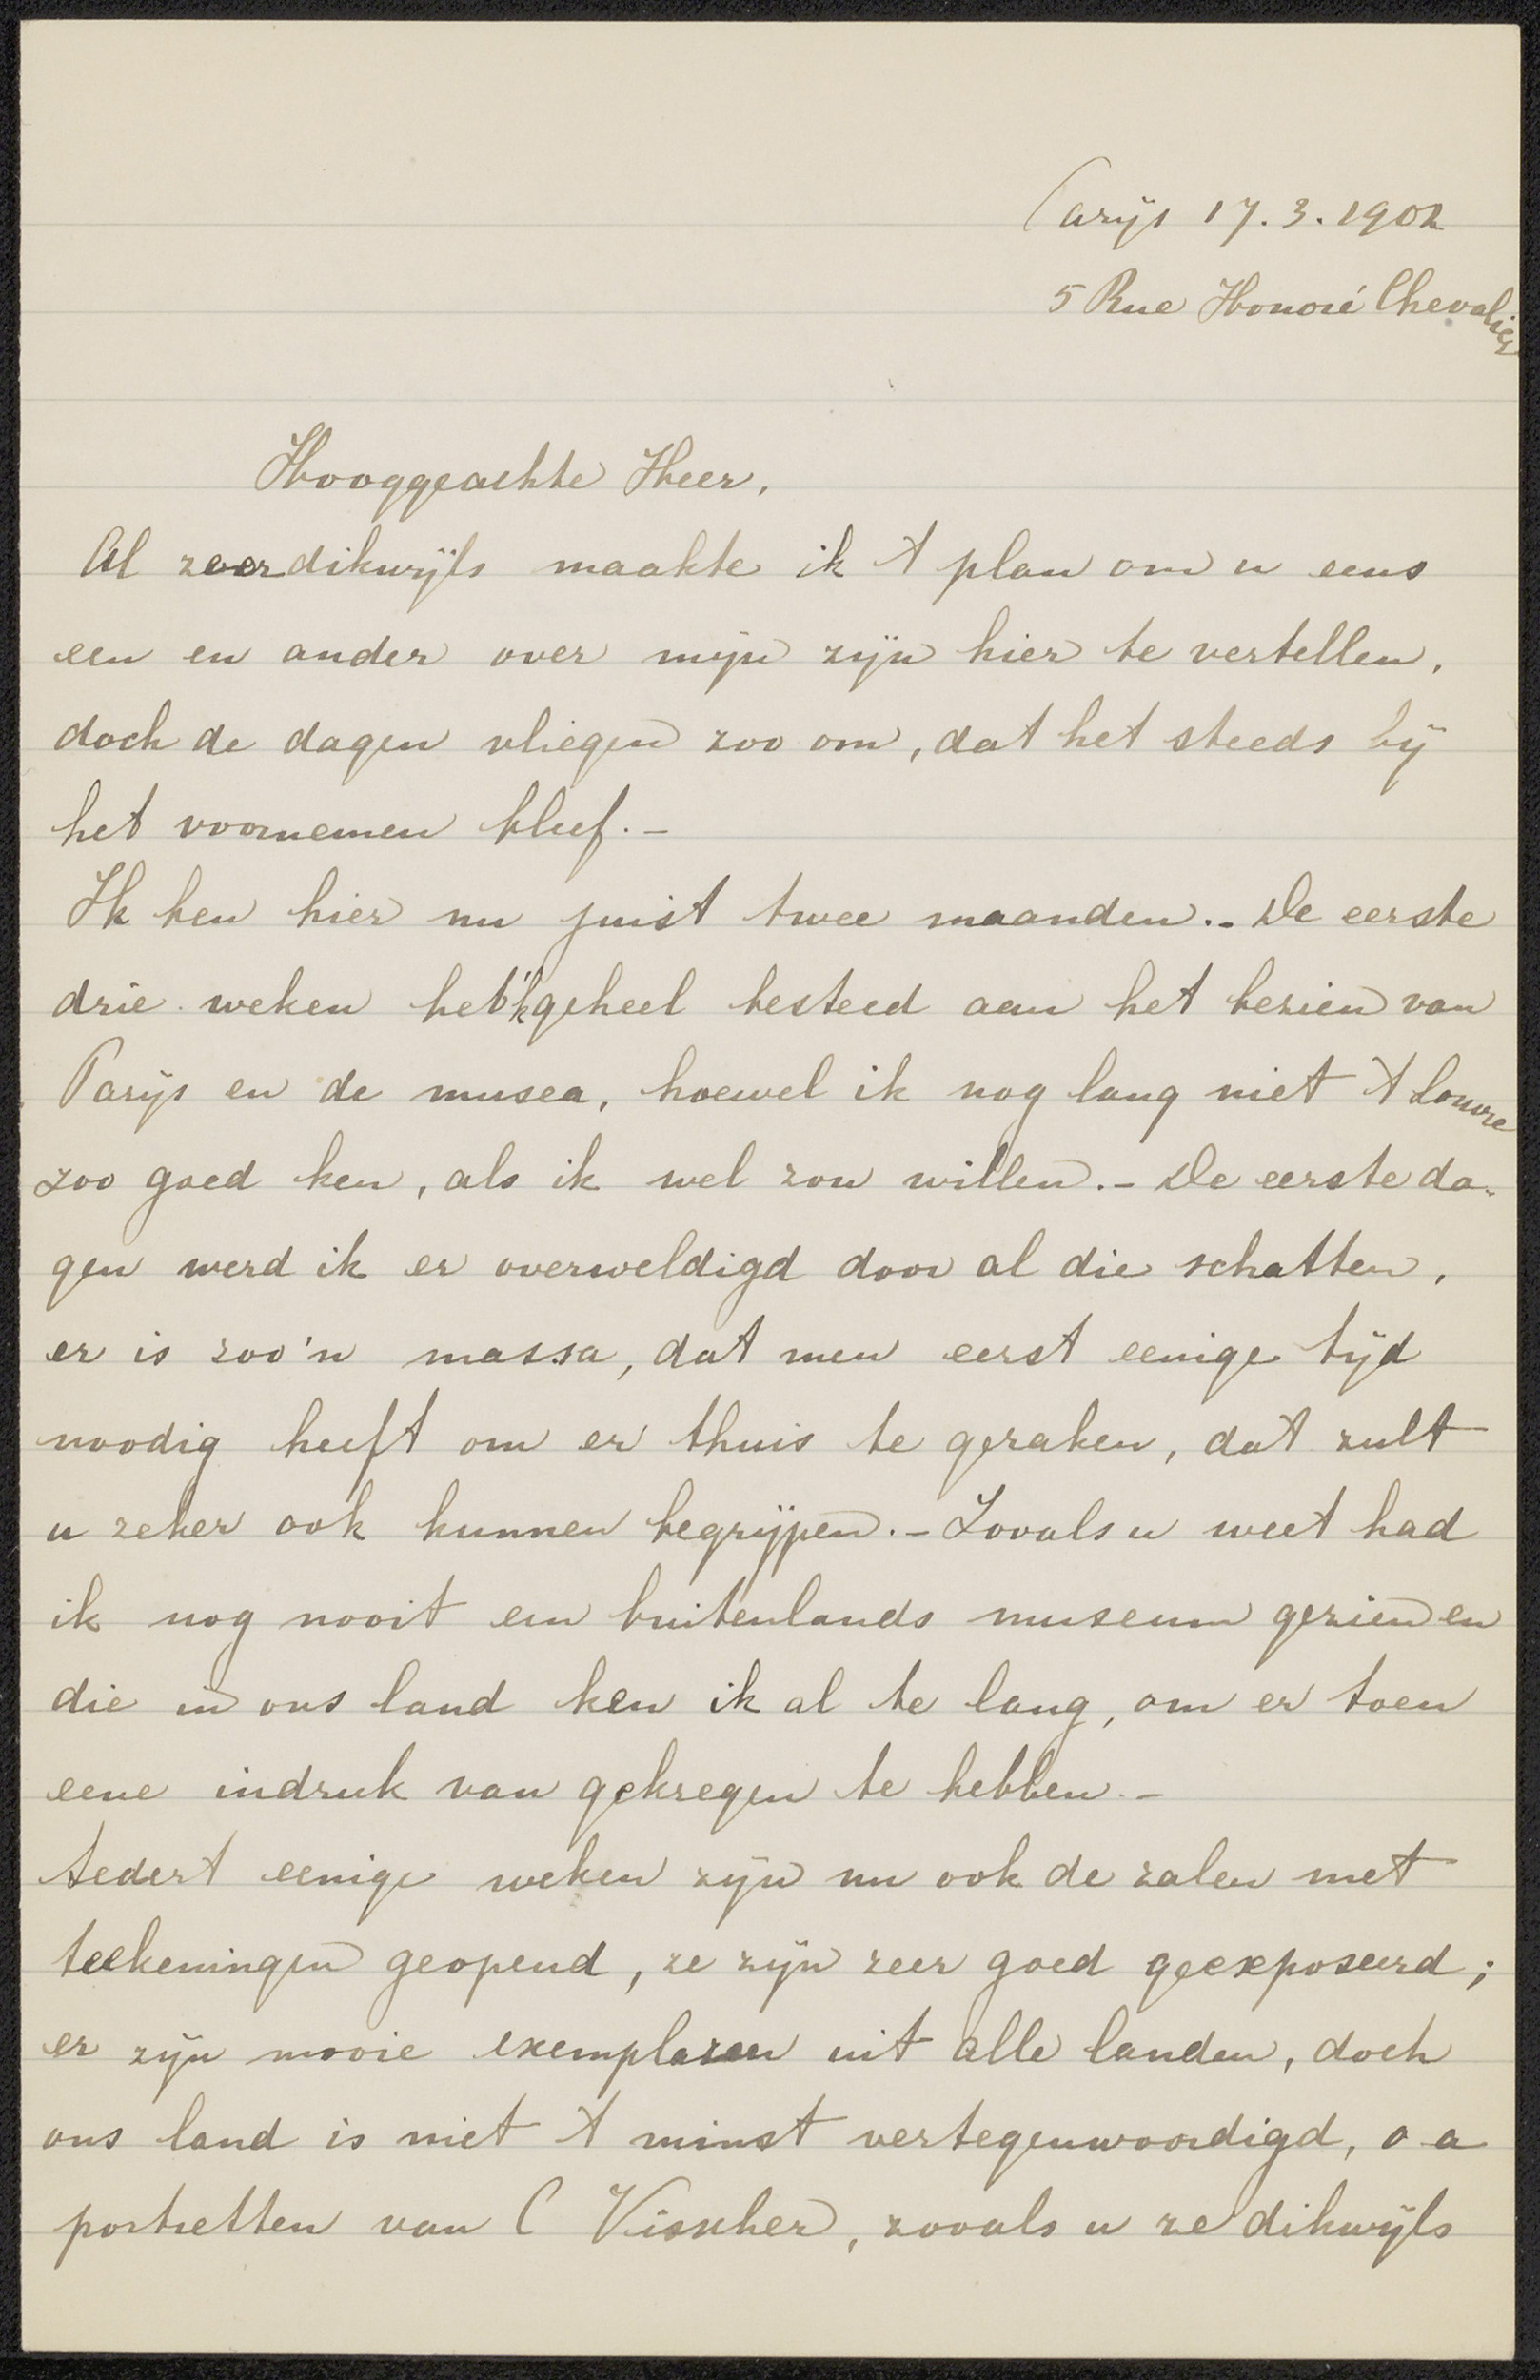 Parijs 17.3.1902
5 Rue Honoré Chevalier
Hooggeachte Heer,
Al zeer dikwijls maakte ik 't plan om u eens
een en ander over mijn zijn hier te vertellen,
doch de dagen vliegen zoo om, dat het steeds bij
het voornemen bleef.–
Ik ben hier nu juist twee maanden.– De eerste
drie weken heb 'k geheel besteed aan het bezien van
Parijs en de musea, hoewel ik nog lang niet 't Louvre
zoo goed ken, als ik wel zou willen.– De eerste da-
gen werd ik er overweldigd door al die schatten,
er is zoo'n massa, dat men eerst eenige tijd
noodig heeft om er thuis te geraken, dat zult
u zeker ook kunnen begrijpen.– Zooals u weet had
ik nog nooit een buitenlands museum gezien en
die in ons land ken ik al te lang, om er toen
eene indruk van gekregen te hebben.–
Sedert eenige weken zijn nu ook de zalen met
teekeningen geopend, ze zijn zeer goed geexposeerd;
er zijn mooie exemplaren uit alle landen, doch
ons land is niet 't minst vertegenwoordigd, o a
portretten van C Visscher, zooals u ze dikwijls